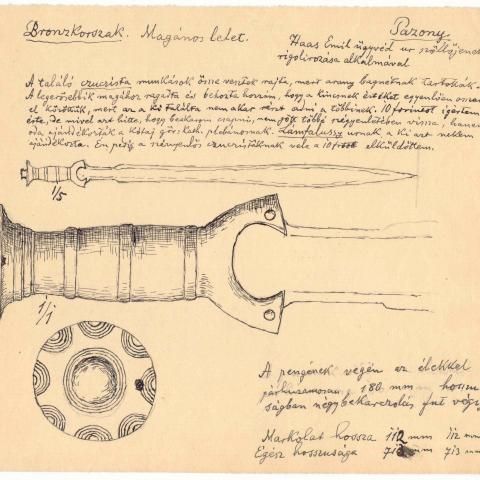 Bronzkorszak. Magános lelet.
Pazony.
Haas Emil ügyvéd ur szőllőjének
rigolirozása alkalmával
A találó czucsista munkások össze vesztek rajta, mert arany bagnetnak tartották.
A legerősebbik magához ragadta és behozta hozzám, hogy a kincsnek értékét egyenlően osszam
el köztük, mert az a ki találta nem akar részt adni a többinek. 10 forintot ígértem
érte, de mivel azt hitte, hogy becsapni, nem jött többé vissza, hanem
oda ajándékozták a kótaj görs kath. plébánosnak. urnak a ki azt nekem
ajándékozta. Én pedig a szegényles czucsistáknak vele a 10 elküldöttem.
1/5
1/1
A pengének végén az élekkel
párhuzamosan 180 mm hosszu
ságban négy bekarczolás fut végig
Markolat hossza 112 mm 112 mm
Egész hosszusága 713 mm 713 mm